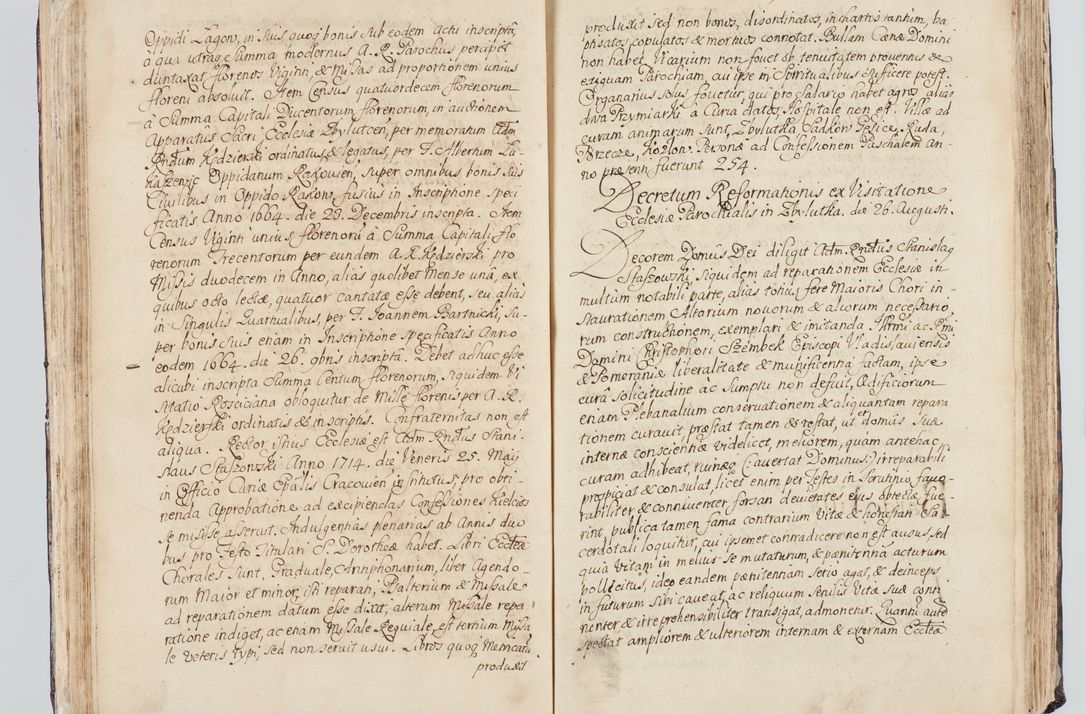 Oppidi Łagow, in suis quoq bonis sub eodem actu inscripta,
à qua utraq Summa modernus A. R. Parochus percipit
duntaxat florenos Viginti, & Missas ad proportionem unius
floreni absolvit. Item Census quatuordecem florenorum
à Summa Capitali Ducentorum florenorum, in auctionem
Apparatus Sacri Ecclesiæ Zbylutcen, per memoratum Adm.
Rndum Kędzierski ordinatus, & legatus, per F. Albertum Łu-
kaszewic Oppidanum Rakovien, super omnibus bonis suis
Civilibus in Oppido Rakow, fusius in Inscriptione speci
ficatis Anno 1664. die 29. Decembris inscripta. Item
Census Viginti unius florenorū à Summa Capitali flo
renorum Trecentorum per eundem A. R. Kędzierski, pro
Missis duodecem in Anno, alias quolibet Mense unâ, ex
quibus octo lectæ, quatuor cantatæ esse debent, seu alias
in Singulis Quartualibus, per F. Joannem Bartnicki, Su-
per bonis suis etiam in Inscriptione specificatis Anno
eodem 1664. die 26. Xbris inscripta. Debet adhuc esse
alicubi inscripta Summa Centum florenorum, siquidem Vi
sitatio Rosciciana obloquitur de Mille florenis per A. R.
Kędzierski ordinatis & inscriptis. Confraternitas non est
aliqua. Rector istius Ecclesiæ est Adm Rndus Stani-
slaus Staszowski Anno 1714. die Veneris 25. Maij
in Officio Curiæ Epalis Cracovien institutus; pro obti-
nenda Approbatione ad excipiendas Confessiones Kielcis
se misisse asseruit. Indulgentias plenarias ab Annis duo
bus pro Festo Titulari S. Dorotheæ habet. Libri Ecclæ
Chorales sunt, Graduale, Antiphonarium, liber Agendo-
rum Maior et minor, isti reparan, Psalterium & Missale
ad reparationem datum esse dixit, alterum Missale repa
ratione indiget, ac etiam Missale Requiale, est tertium Missa
le veteris typi, sed non servit usui. Libros quoq Metricarū
produxit
produxit sed non bonos, disordinatos, in chartis tantum, ba
ptisatos copulatos & mortuos connotat. Bullam Cœnæ Domini
non habet. Vicarium non fovet ob tenuitatem proventus &
exiguam Parochiam, cui ipse in Spiritualibus sufficere potest.
Organarius solus fovetur, qui pro salario habet agros alias
dwa Przymiarki à Curia datos, Hospitale non est. Villæ ad
curam animarum sunt, Zbylutka Sadkow Jesice, Ruda,
Wrzecze, Kozłow. Personæ ad Confessionem Paschalem An-
no præsenti fuerunt 254.
Decretum Reformationis ex Visitatione
Ecclesiæ Parochialis in Zbylutka, die 26. Augusti.
Decorem Domûs Dei diligit Adm. Rndus Stanislaq
Staszowski, siquidem ad reparationem Ecclesiæ in
multum notabili parte, alias totius fere Maioris Chori in-
staurationem Altarium novorum & aliorum necessario
rum constructionem, exemplari & imitanda Illrmi ac Rmi
Domini Christophori Szembek Episcopi Vladislaviensis
& Pomeraniæ liberalitate & munificentia factam, ipse
curâ solicitudine ac sumptu non defuit, Ædificiorum
etiam Plebanalium conservationem & aliquantam repara
tionem curavit, præstat tamen & restat, ut domûs suæ
internæ conscientiæ videlicet, meliorem, quam antehac
curam adhibeat, ruinæq (: avertat Dominus:) irreparabili
prospiciat & consulat, licet enim per Testes in Scrutinio favo-
rabiliter & conniventer forsan devietates ejus obtectæ fue-
rint, publica tamen fama contrarium Vitæ & honestati Sa-
cerdotali loquitur, cui ipsemet contradicere non est ausus sed
quia vitam in melius se mutaturum, & pœnitentiā acturum
pollicitus, ideo eandem pœnitentiam serio agat, & deinceps
in futurum sibi caveat, ac reliquum senilis Vitæ suæ conti
nenter & irreprehensibiliter transigat, admonetur. Quantū aute
spectat ampliorem & ulteriorem internam & externam Ecclæ